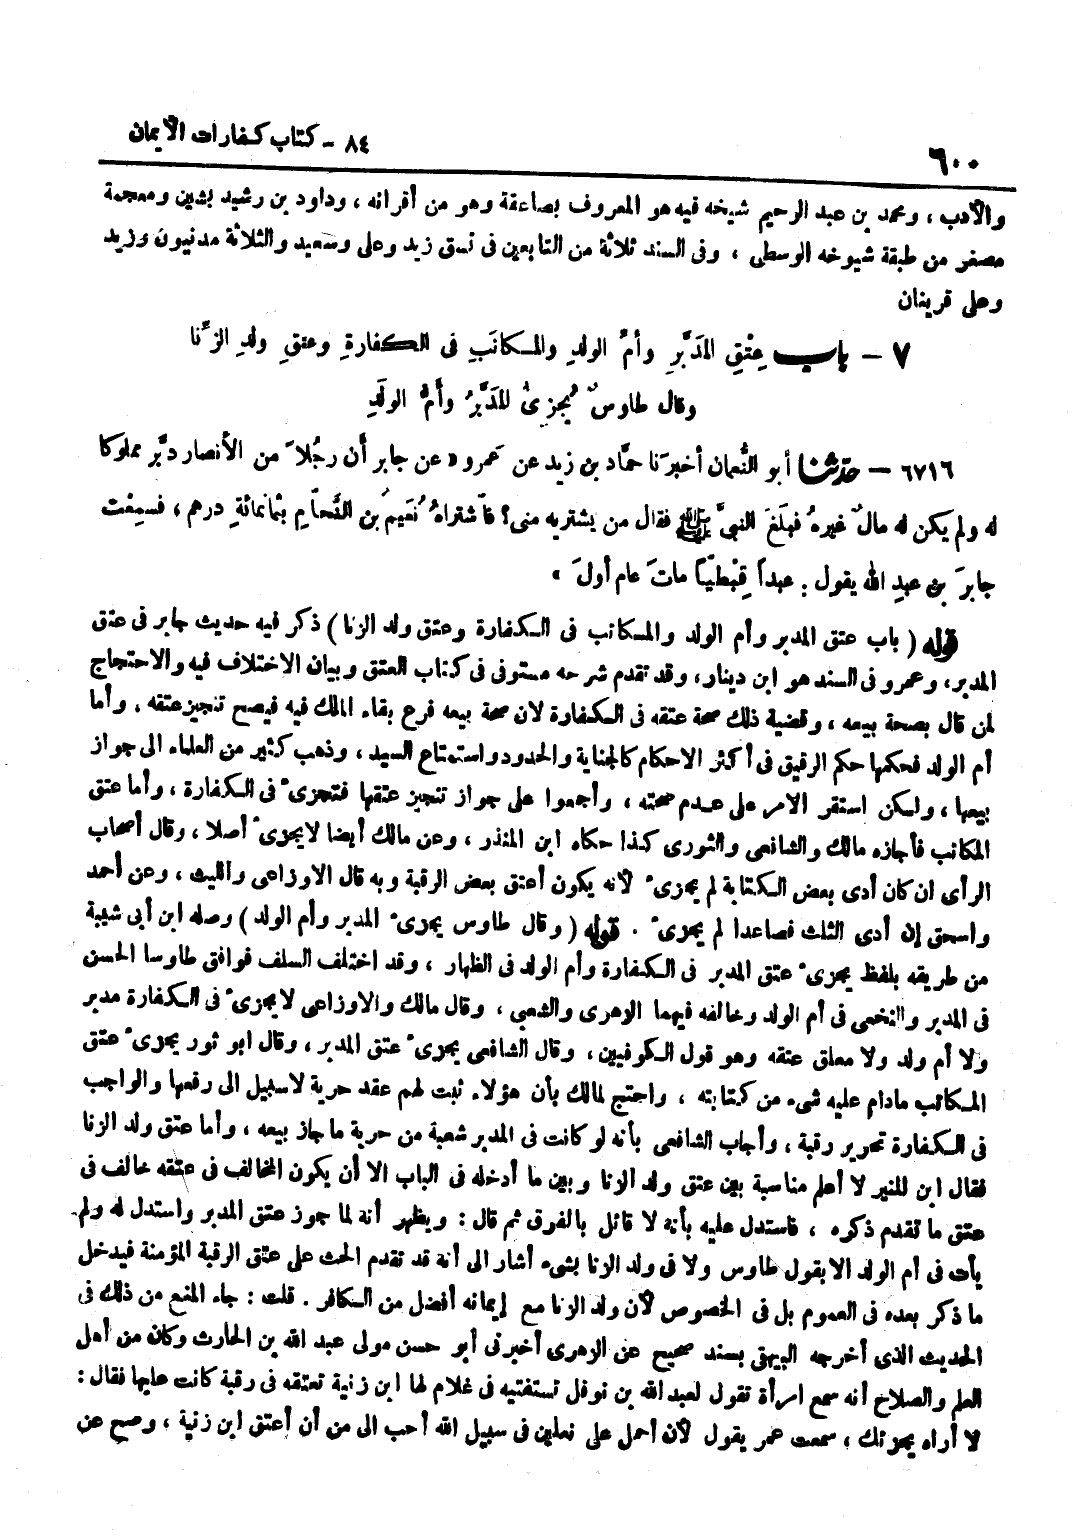 ٦٠٠
٨٤ - كتاب كفارات الأيمان
والأدب ، ومحمد بن عبد الرحيم شيخه فيه هو المعروف بصاعقة وهو من أقرانه ، وداود بن رشيد بشين ومعجمة
مصغر من طبقة شيوخه الوسطى ، وفى السند ثلاثة من التابعين فى نسق زيد وعلى وسعيد والثلاثة مدنيون وزيد
وعلى قرينان
٧ - باب عِتْقِ المدَبَّرِ وأمِّ الولدِ والمكاتَبِ فى الكفارةِ وعتقِ ولدِ الزِّنا
وقال طاوسٌ يُجزِئُ المدَبَّرُ وأمُّ الولَدِ
٦٧١٦ - حدّثنا أبو النُّعمان أخبرَنا حمَّاد بن زيد عن عَمرو « عن جابر أن رجُلاً من الأنصار دبَّر مملوكا
له ولم يكن له مالٌ غيرهُ فبلغَ النبيَّ ﷺ فقال من يشتريه منى؟ فاشتراهُ نُعَيمُ بن النَّحام بثمانمائةِ درهم ، فسمِعْت
جابرَ بن عبدِ الله يقول : عبداً قِبطيّاً ماتَ عام أولَ »
قوله ( باب عتق المدبر وأم الولد والمكاتب فى الكفارة وعتق ولد الزنا ) ذكر فيه حديث جابر فى عتق
المدبر، وعمرو فى السند هو ابن دينار، وقد تقدم شرحه مستوفى فى كتاب العتق وبيان الاختلاف فيه والاحتجاج
لمن قال بصحة بيعه ، وقضية ذلك صحة عتقه فى الكفارة لان صحة بيعه فرع بقاء الملك فيه فيصح تنجيز عتقه . وأما
أم الولد فحكمها حكم الرقيق فى أكثر الاحكام كالجناية والحدود واستمتاع السيد ، وذهب كثير من العلماء الى جواز
بيعها ، ولكن استقر الامر على عدم صحته ، وأجمعوا على جواز تنجيز عتقها فتجزىء فى الكفارة ، وأما عتق
المكاتب فأجازه مالك والشافعى والثورى كذا حكاه ابن المنذر ، وعن مالك أيضا لايجزىء أصلا ، وقال أصحاب
الرأى ان كان أدى بعض الكتابة لم يجزىء لأنه يكون أعتق بعض الرقبة وبه قال الاوزاعى والليث ، وعن أحمد
واسحق إن أدى الثلث فصاعدا لم يجزىء . قوله ( وقال طاوس يجزىء المدبر وأم الولد ) وصله ابن أبى شيبة
من طريقه بلفظ يجزىء عتق المدبر فى الكفارة وأم الولد فى الظهار ، وقد اختلف السلف فوافق طاوسا الحسن
فى المدبر والنخعى فى أم الولد وخالفه فيهما الزهرى والشعبى ، وقال مالك والاوزاعى لايجزىء فى الكفارة مدبر
ولا أم ولد ولا معلق عتقه وهو قول الكوفيين ، وقال الشافعى يجزىء عتق المدبر ، وقال ابو ثور يجزىء عتق
المكاتب مادام عليه شىء من كتابته ، واحتج لمالك بأن هؤلاء ثبت لهم عقد حرية لاسبيل الى رفعها والواجب
فى الكفارة تحرير رقبة ، وأجاب الشافعى بأنه لو كانت فى المدبر شعبة من حرية ما جاز بيعه ، وأما عتق ولد الزنا
فقال ابن المنير لا أعلم مناسبة بين عتق ولد الزنا وبين ما أدخله فى الباب الا أن يكون المخالف فى عتقه خالف فى
عتق ما تقدم ذكره ، فاستدل عليه بأنه لا قائل بالفرق ثم قال : ويظهر أنه لما جوز عتق المدبر واستدل له ولم
يأت فى أم الولد الا بقول طاوس ولا فى ولد الزنا بشىء أشار الى أنه قد تقدم الحث على عتق الرقبة المؤمنة فيدخل
ما ذكر بعده فى العموم بل فى الخصوص لأن ولد الزنا مع إيمانه أفضل من الكافر . قلت : جاء المنع من ذلك فى
الحديث الذى أخرجه البيهقى بسند صحيح عن الزهرى أخبرنى أبو حسن مولى عبد الله بن الحارث وكان من أهل
العلم والصلاح أنه سمع امرأة تقول لعبد الله بن نوفل تستفتيه فى غلام لها ابن زنية تعتقه فى رقبة كانت عليها فقال :
لا أراه يجزئك ، سمعت عمر يقول لأن أحمل على نعلين فى سبيل الله أحب الى من أن أعتق ابن زنية ، وصح عن